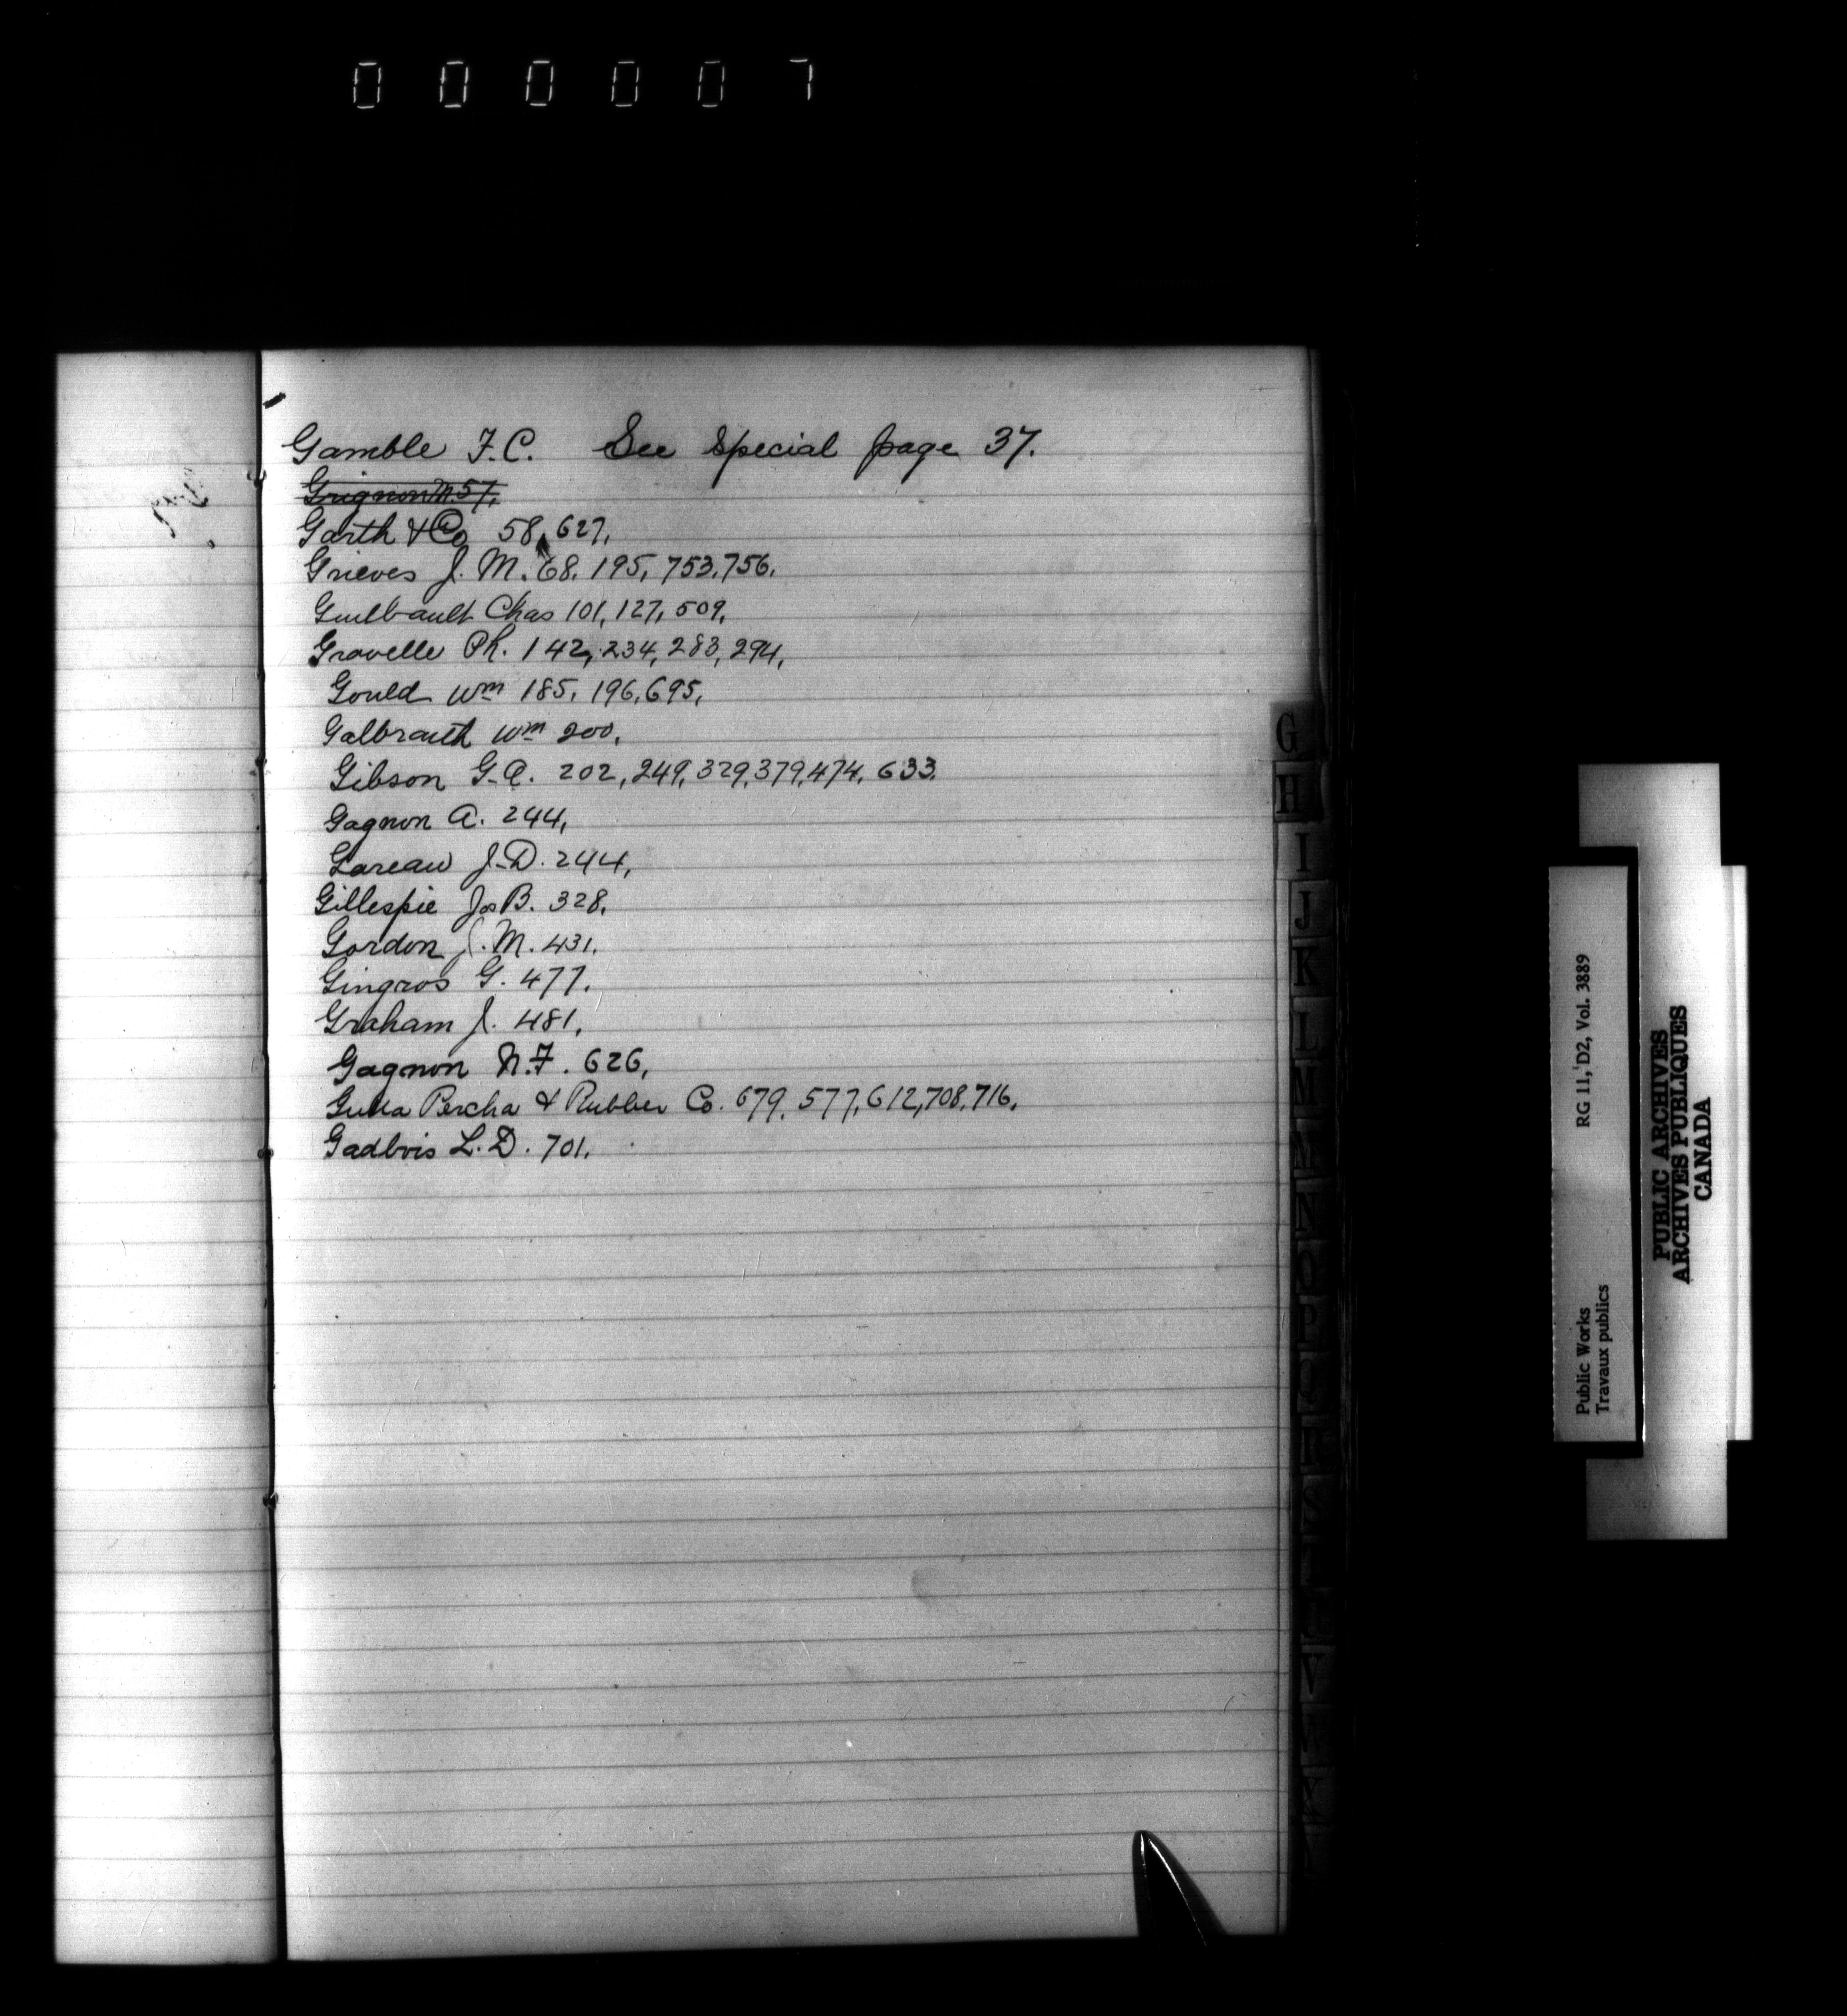 000007
Gamble F.C. See Special page 37.
Grignon N. 57,
Garth & Co 58, 627,
Grieves J. M. 68. 195, 753, 756.
Guilbault Chas 101, 127, 509,
Gravelle Ph. 142, 234, 283, 294,
Gould Wm 185, 196, 695,
Galbraith Wm 200,
Gibson G.A. 202, 249, 329, 379, 474, 633.
Gagnon A. 244,
Gareau J-D. 244,
Gillespie Jos B. 328,
Gordon J. M. 431.
Gingras G. 477.
Graham J. 481,
Gagnon N.F. 626,
Gutta Percha & Rubber Co. 679, 577, 612, 708, 716,
Gadbois L. D. 701,
G
H
I
J
K
L
M
N
O
P
S
V
Public Works RG 11, D2, Vol. 3889
Travaux publics
PUBLIC ARCHIVES
ARCHIVES PUBLIQUES
CANADA